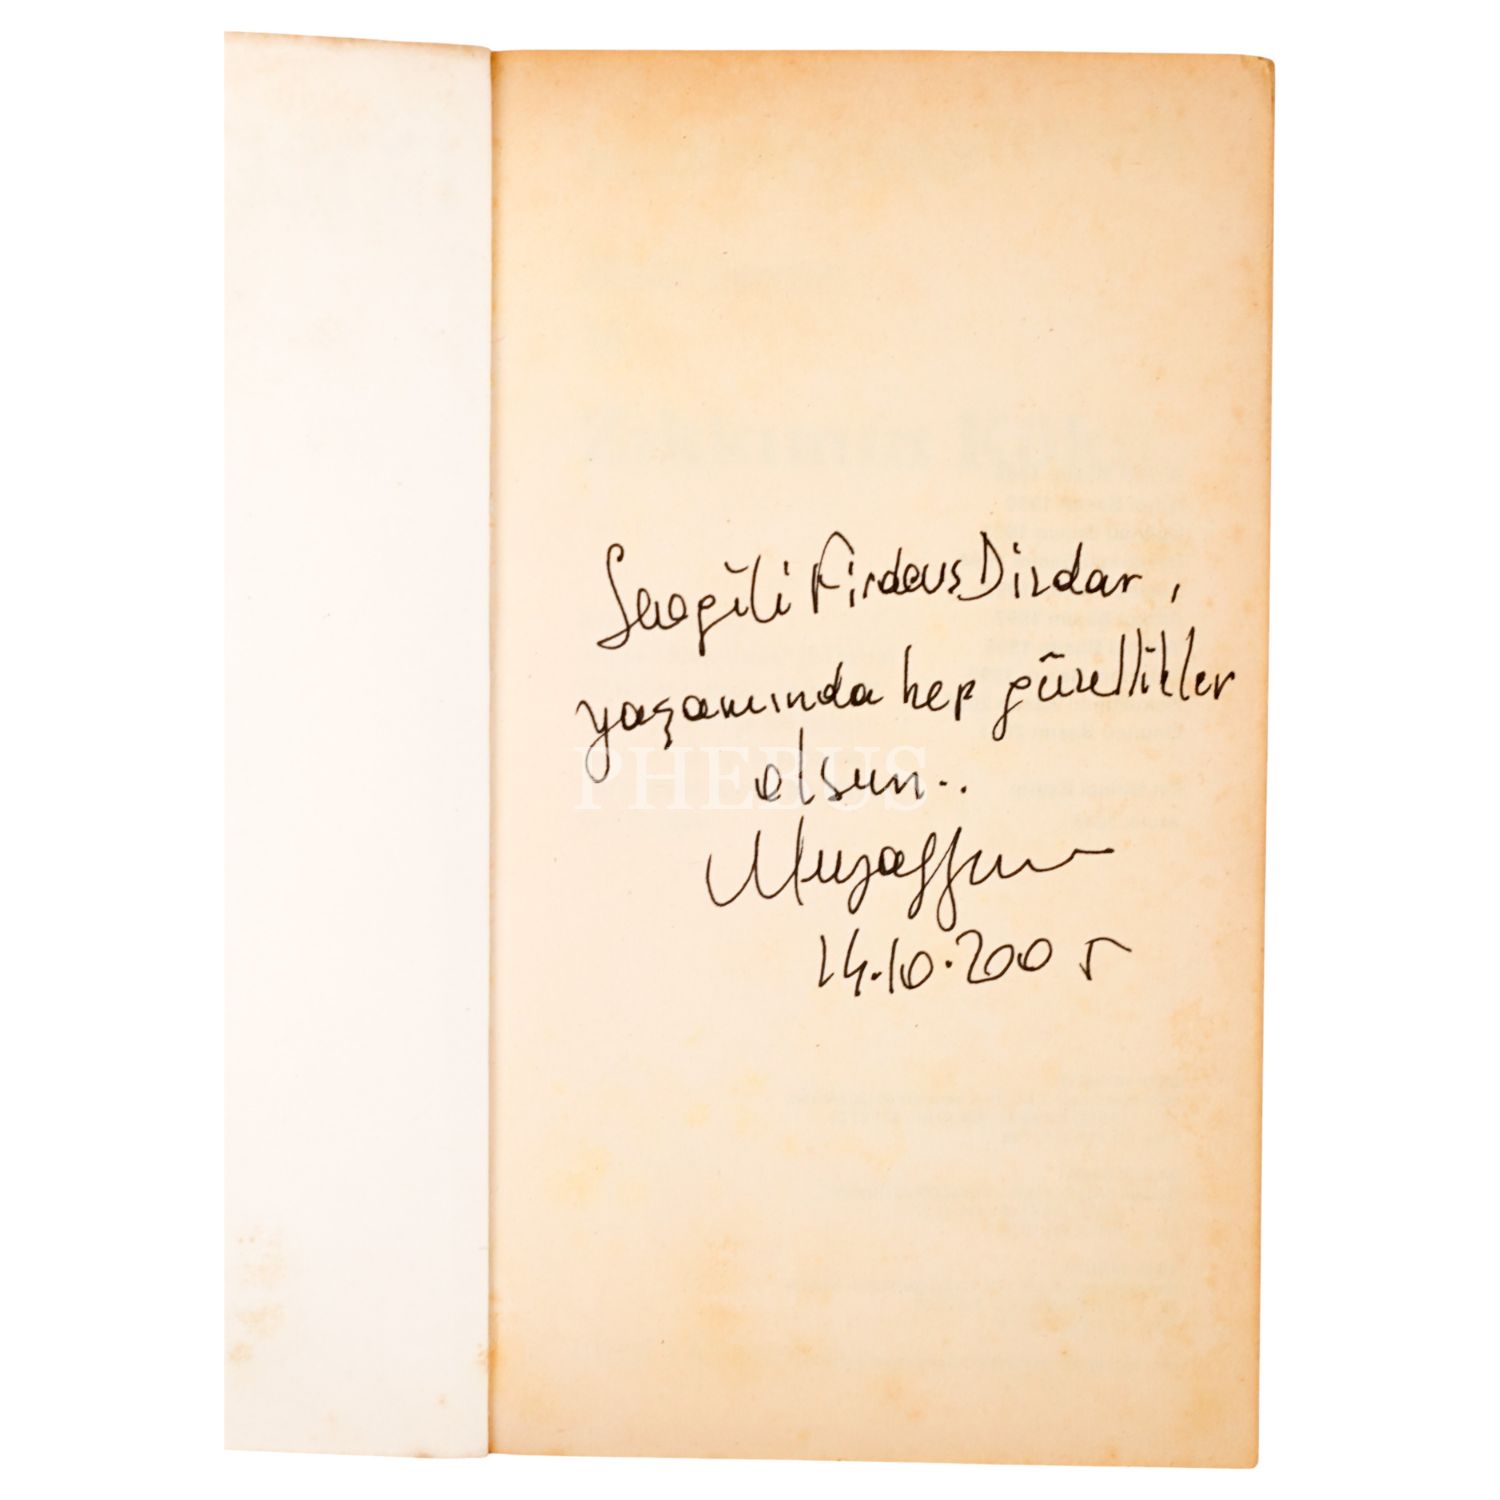 Sevgili Firdevs Dizdar,
yaşamında hep güzellikler
olsun..
PHEBUS
Muzaffer
14.10.2005